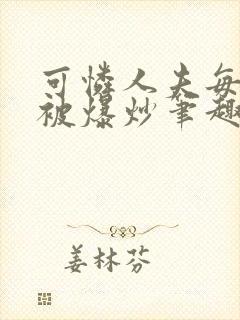 可怜人夫每
被爆炒笔趣
姜林芬